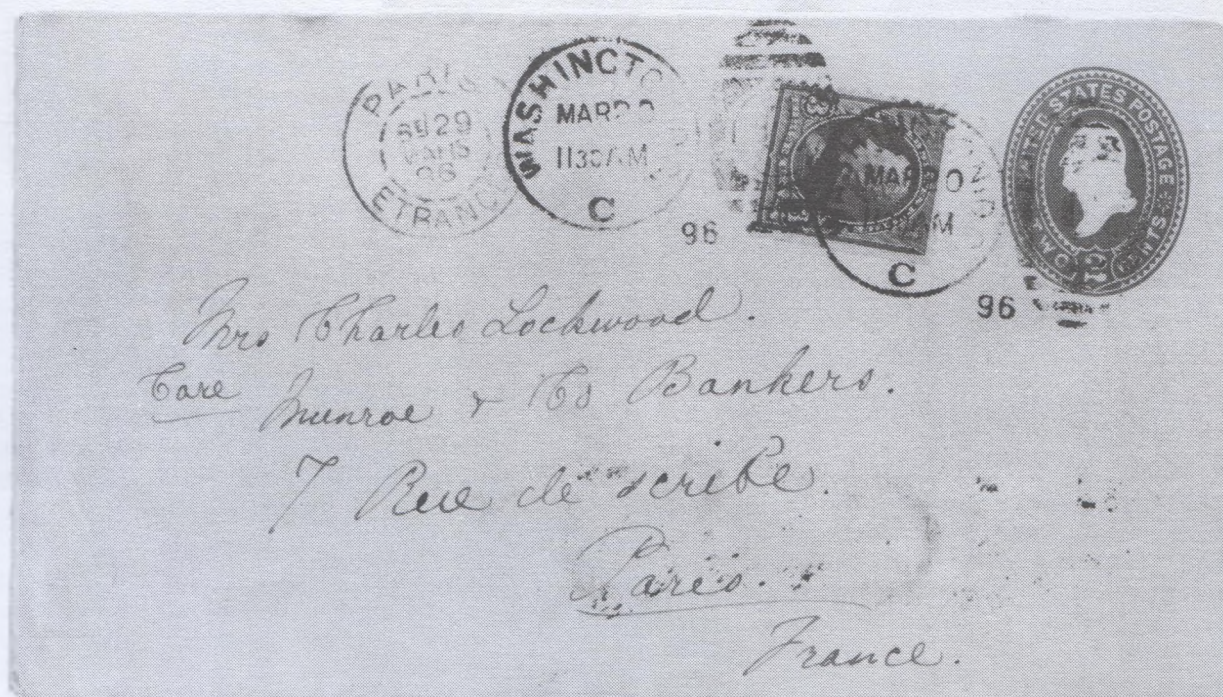 PARIS
29
96
ETRANGER
WASHINGTON
MAR 20
1130AM
C
96
3
3
MAR 20
AM
C
96
UNITED STATES POSTAGE
TWO 2 CENTS
Mrs Charles Lockwood.
Care Munroe & Co Bankers.
7 Rue de scribe.
Paris.
France.